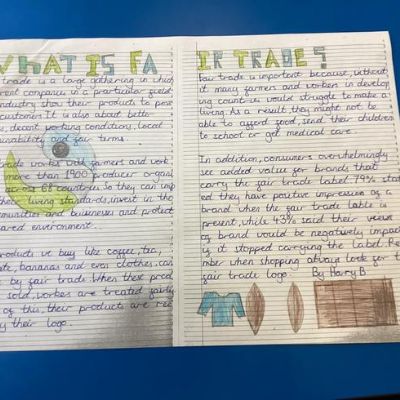 WHAT IS FA
trade is a large gathering in which
rent companies in a prarticular field
industry show their products to
customers. It is also about better
decent working conditions, local
ainability and fair terms.
ade works with farmers and work
more than 1900 producer organi
across 68 countries. So they can imp
their living standards, invest in the
munities and businesses and protect
ared environment.
roducts we buy like coffee, tea,
ate, bananas and even clothes can
by fair trade. When these prod
sold, workers are treated fairly
of this, their products are
by their logo.
IR TRADE?
Fair trade is important because, without
it many farmers and workers in develop
ing countries would struggle to make a
living. As a result they might not be
able to afford food, send their children
to school or get medical care.
In addition, consumers overwhelmingly
see added value for brands that
carry the fair trade label 79% stat
ed they have positive impression of a
brand when the fair trade lable is
present, while 43% said their veiw
of brand would be negatively impac
if it stopped carrying the label. Re
mber when shopping always look for t
fair trade logo. By Harry B